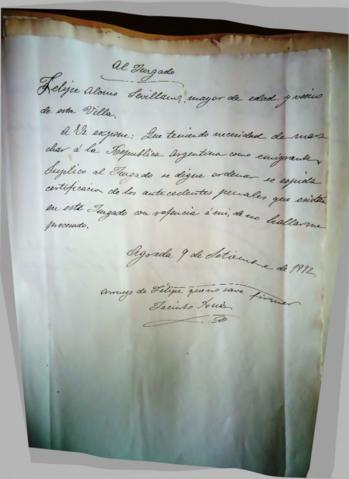 Al Juzgado
Felipe Alonso Sevillano, mayor de edad y vecino
de esta Villa.
A V. expone: Que teniendo necesidad de mar
char á la Republica Argentina como emigrante,
Suplico al Juzgado se digne ordenar se expida
certificacion de los antecedentes penales que existan
en este Juzgado con referencia á mi, de no hallarme
procesado.
Agreda 9 de Setiembre de 1912
A ruego de Felipe que no save firmar
Jacinto